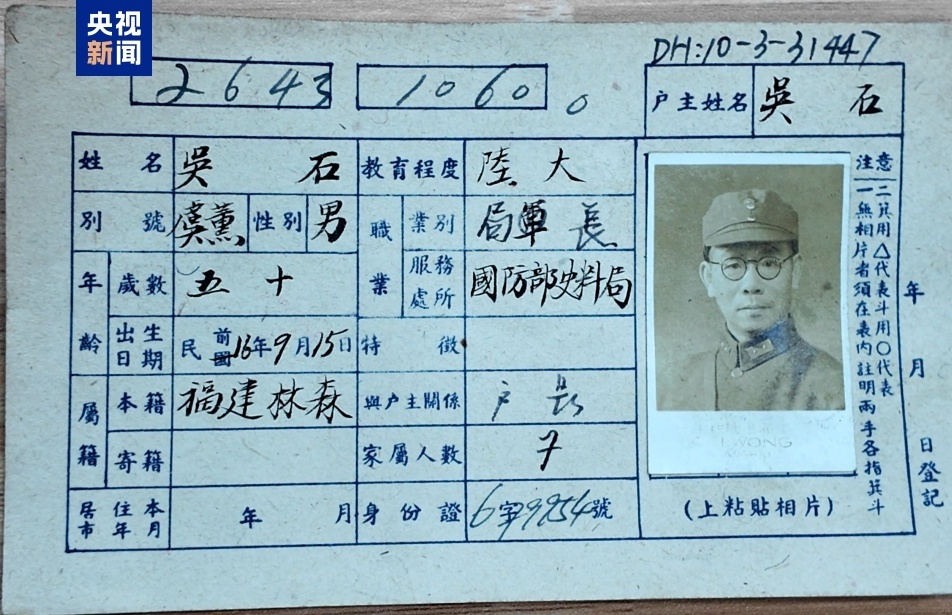 央视
新闻
DH:10-3-31447
2643
1060
。
户主姓名 吳石
姓名 吳石 教育程度 陸大
別號 虞薰 性別 男 職業 業別 局軍長
年齡 歲數 五十 服務處所 國防部史料局
出生日期 民前國16年9月15日 特徵
屬籍 本籍 福建林森 與户主關係 户長
寄籍 家屬人數 7
居住本市年月 年 月 身份證 6字9954號
(上粘貼相片)
WONG
注意
一無相片者須在表内註明兩手各指箕斗
二箕用△代表斗用〇代表
年 月 日登記